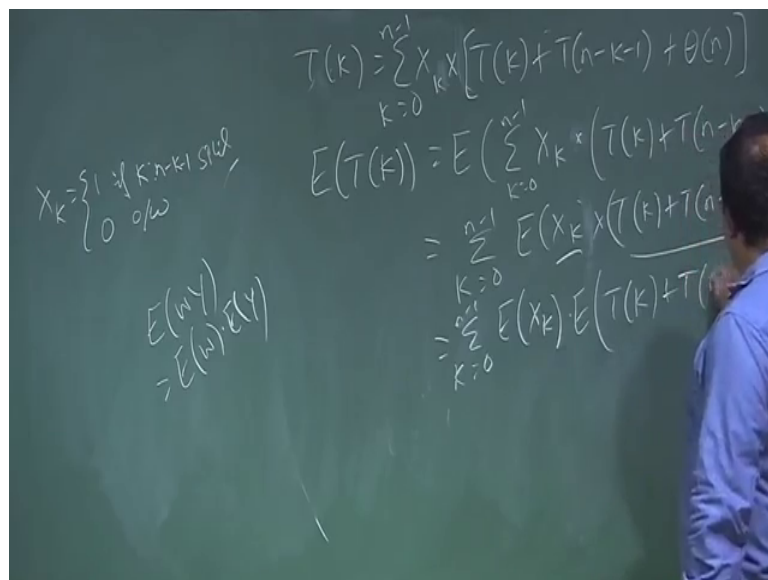 T(k) = \sum_{k=0}^{n-1} X_k × [T(k) + T(n-k-1) + θ(n)]
E(T(k)) = E( \sum_{k=0}^{n-1} X_k * (T(k) + T(n-k
= \sum_{k=0}^{n-1} E(X_k) × (T(k) + T(n-
= \sum_{k=0}^{n-1} E(X_k) · E(T(k) + T(
X_k = { 1 if k:n-k-1 split
0 o/w
E(WY)
= E(W) · E(Y)